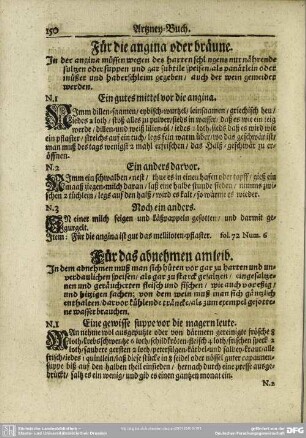 150 Artzney-Buch.
Für die angina oder bräune.
In der angina müssen wegen des harten schlingens nur nährende
sulzen oder suppen und gar subtile speisen als panätlein oder
müßer und haberschleim gegeben / auch der wein gemeidet
werden.
N.1 Ein gutes mittel vor die angina.
Nimm dillen-saamen / eybisch-wurtzel / leinsaamen / griechisch heu /
jedes 2 loth / stoß alles zu pulver / sieds in wasser / daß es wie ein teig
werde / dillen-und weiß lilien-öl / jedes 1 loth /
ein pflaster / streichs auf ein tuch / legs fein warm über / wo das geschwär ist
man muß des tags wenigst 2 mahl erfrischen / das Halß-geschwär zu er-
öffnen.
N.2 Ein anders darvor.
Nimm ein schwalben-nest / thus es in einen hafen oder topff /
maaß ziegen-milch daran / laß eine halbe stunde sieden / nimms zwi-
schen 2 tüchlein / legs auf den halß / wird es kalt / so wärme es wieder.
N.3 Noch ein anders.
In einer milch feigen und käßpappeln gesotten / und darmit ge-
gurgelt.
Item: Für die angina ist gut das melliloten-pflaster. fol. 72 Num. 6
Für das abnehmen am leib.
In dem abnehmen muß man sich hüten vor gar zu harten und un-
verdaulichen speisen / als gar zu starck gesaltzen / eingesaltze-
nen und geräucherten fleisch und fischen / wie auch vor essig /
und hitzigen sachen; von dem wein muß man sich gäntzlich
enthalten / darvor kühlende träncke / als zum exempel gersotte-
ne wasser brauchen.
N.1 Eine gewisse suppe vor die magern leute.
Man nehme wol ausgeputzte oder von därmern gereinigte frösche 8
loth / krebs-schwäntze 6 loth / schildkröten-fleisch 4 loth / frischen speck 2
loth / saubere gersten 2 loth / petersilgen-
frisch / jedes 1
suppe biß auf den halben theil einsieden / hernach durch eine presse ausge-
druckt / saltz es ein wenig / und gib es einen gantzen monat ein.
N.2